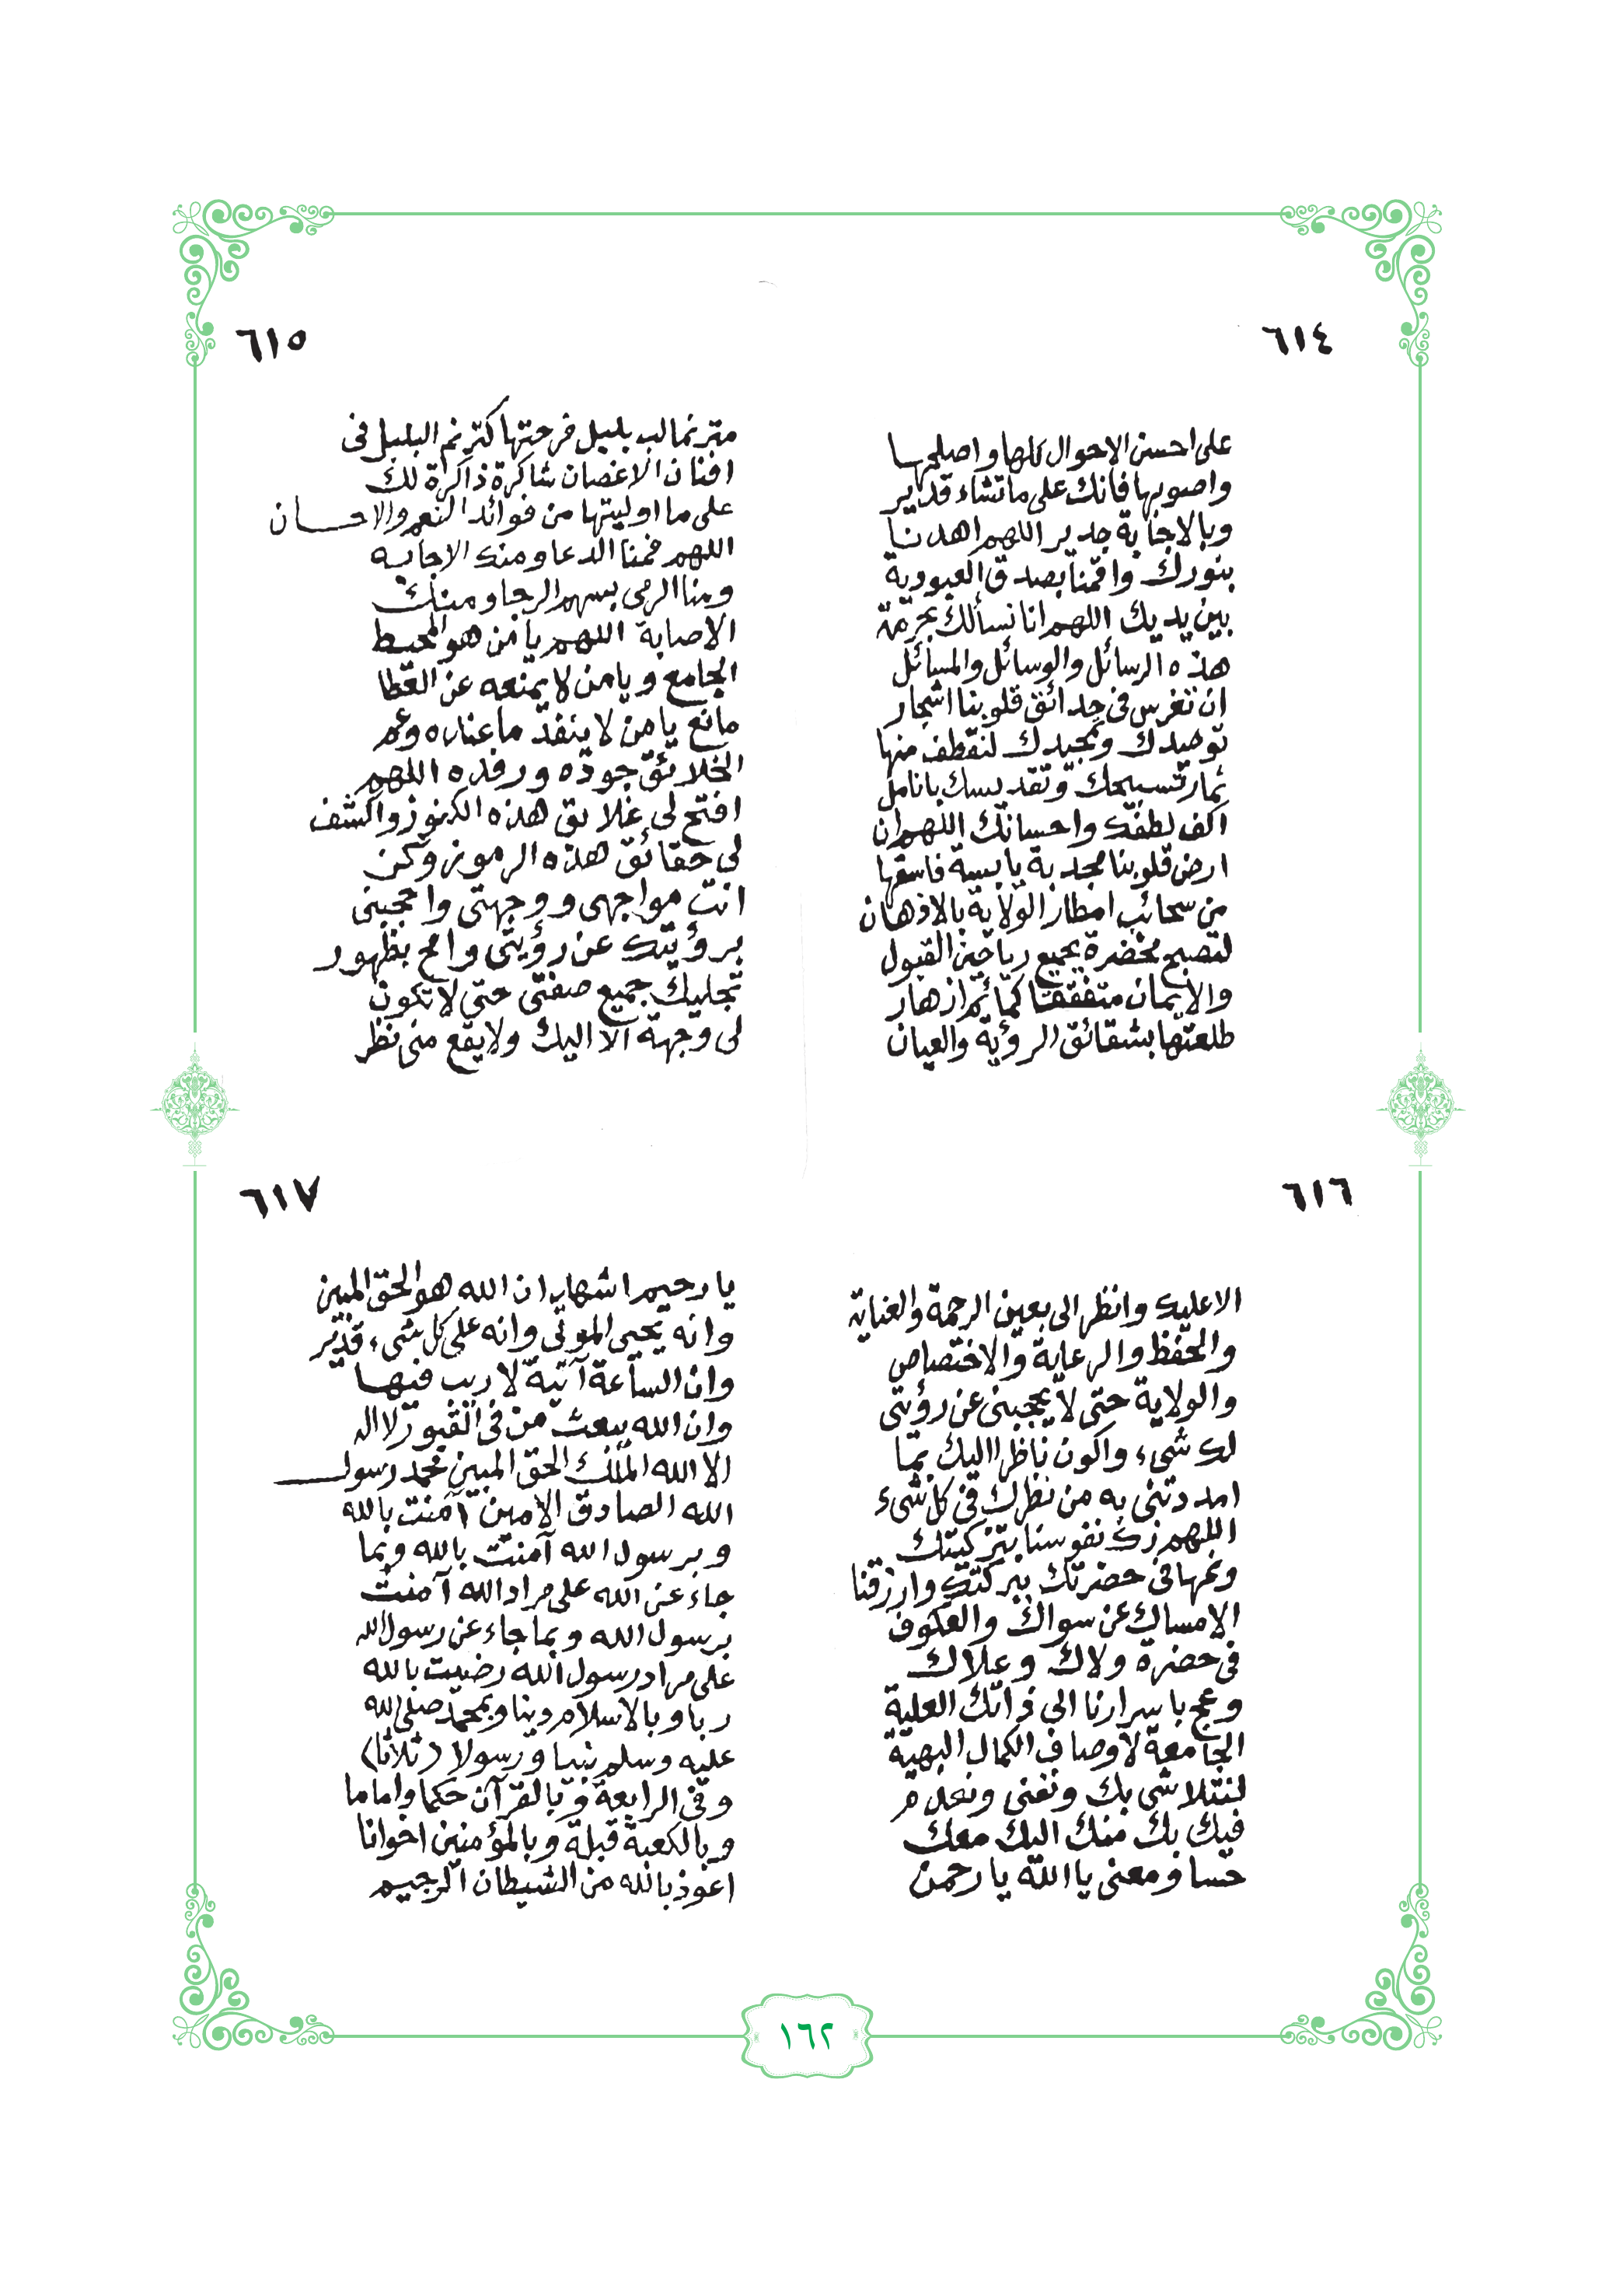 ٦١٤
على احسن الاحوال كلها واصلحها
واصوبها فانك على ما تشاء قدير
وبالاجابة جدير اللهم اهدنا
بنورك واقمنا بصدق العبودية
بين يديك اللهم انا نسألك بحرمة
هذه الرسائل والوسائل والمسائل
ان تغرس فى حدائق قلوبنا اشجار
توحيدك وتمجيدك لنقطف منها
ثمار تسبيحك وتقديسك بانامل
اكف لطفك واحسانك اللهم ان
ارض قلوبنا مجدبة يابسة فاسقها
من سحائب امطار الولاية بالاذهان
لتصبح مخضرة بجميع رياحين القبول
والايمان متفتقتا كمائم ازهار
طلعتها بشقائق الرؤية والعيان
٦١٥
مترنما لب بلبل فرحتها كترنم البلبل فى
افنان الاغصان شاكرة ذاكرة لك
على ما اوليتها من فوائد النعم والاحسان
اللهم فمنا الدعا ومنك الاجابه
ومنا الرمى بسهم الرجا ومنك
الاصابة اللهم يا من هو المحيط
الجامع ويا من لا يمنعه عن العطا
مانع يا من لا ينفد ما عنده وعم
الخلائق جوده ورفده اللهم
افتح لى غلايق هذه الكنوز واكشف
لى حقائق هذه الرموز وكن
انت مواجهى ووجهتى واحجبنى
برؤيتك عن رؤيتى وامح بظهور
تجليك جميع صفتى حتى لا تكون
لى وجهة الا اليك ولا يقع منى نظر
٦١٦
الا عليك وانظر الى بعين الرحمة والعناية
والحفظ والرعاية والاختصاص
والولاية حتى لا يحجبنى عن رؤيتى
لك شىء واكون ناظرا اليك بما
امددتنى به من نظرك فى كل شىء
اللهم زك نفوسنا بتزكيتك
ونمها فى حضرتك ببركتك وارزقنا
الامساك عن سواك والعكوف
فى حضرة ولاك وعلاك
وعج باسرارنا الى ذاتك العلية
الجامعة لاوصاف الكمال البهية
لنتلاشى بك ونفنى ونعدم
فيك بك منك اليك معك
حسا ومعنى يا الله يا رحمن
٦١٧
يا رحيم اشهد ان الله هو الحق المبين
وانه يحيى الموتى وانه على كل شىء قدير
وان الساعة آتية لا ريب فيها
وان الله يبعث من فى القبور لا اله
الا الله الملك الحق المبين محمد رسول
الله الصادق الامين آمنت بالله
وبرسول الله آمنت بالله وبما
جاء عن الله على مراد الله آمنت
برسول الله وبما جاء عن رسول الله
على مراد رسول الله رضيت بالله
ربا وبالاسلام دينا وبمحمد صلى الله
عليه وسلم نبيا ورسولا (ثلاثا)
وفى الرابعة وبالقرآن حكما واماما
وبالكعبة قبلة وبالمؤمنين اخوانا
اعوذ بالله من الشيطان الرجيم
١٦٢